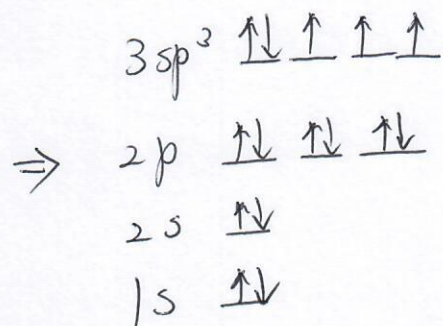 3sp³ ↑↓ ↑ ↑ ↑
⇒ 2p ↑↓ ↑↓ ↑↓
2s ↑↓
1s ↑↓